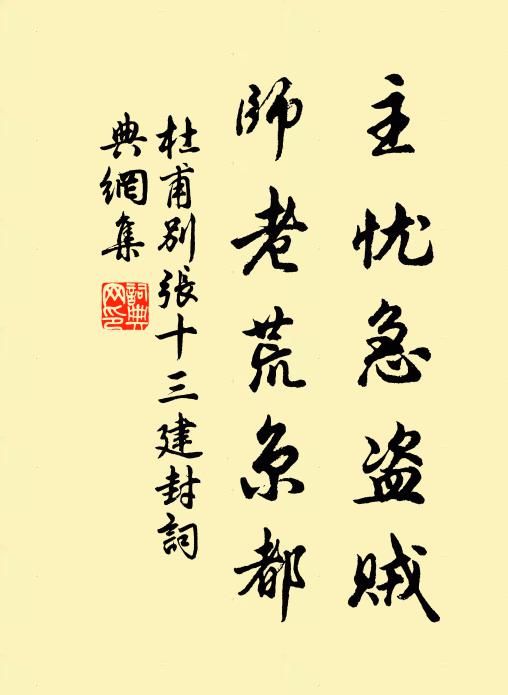 主忧急盗贼
师老荒京都
杜甫别張十三建封詞
典網集
詞典网印